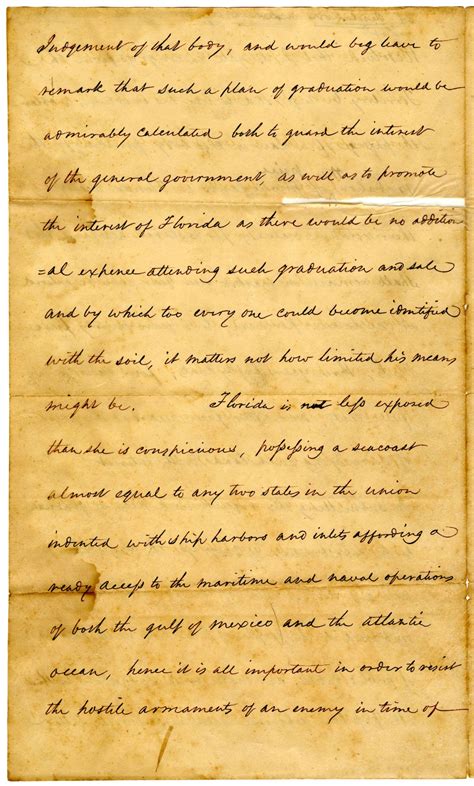 Judgement of that body, and would beg leave to
remark that such a plan of graduation would be
admirably calculated both to guard the interest
of the general government, as well as to promote
the interest of Florida as there would be no addition
=al expence attending such graduation and sale
and by which too every one could become identified
with the soil, it matters not how limited his means
might be. Florida is not less exposed
than she is conspicious, possessing a seacoast
almost equal to any two states in the union
indented with ship harbors and inlets affording a
ready access to the maritime and naval operations
of both the gulf of Mexico and the atlantic
ocean, hence it is all important in order to resist
the hostile armaments of an enemy in time of